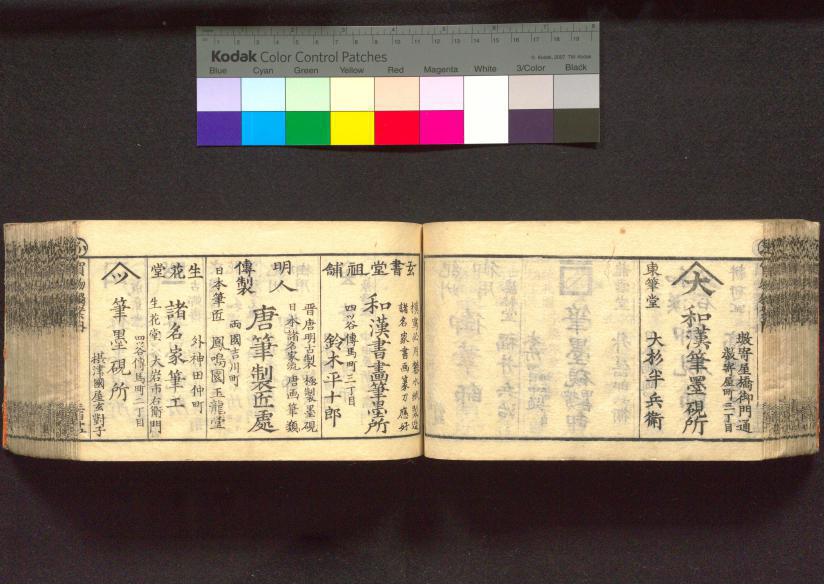 Kodak Color Control Patches
© Kodak, 2007 TM: Kodak
Blue Cyan Green Yellow Red Magenta White 3/Color Black
數寄屋橋御門通
數寄屋町二丁目
大
和漢筆墨硯所
東筆堂 大杉半兵衛
諸名家書画篆刀應好
玄書堂祖舗
和漢書畫筆墨所
四ツ谷傳馬町二丁目
鈴木平十郎
晋唐明古製極製墨硯
日本諸名家流唐画筆類
明人傳製
唐筆製匠處
両國吉川町
日本筆匠 鳳鳴園玉龍堂
生花堂
諸名家筆工
外神田仲町
生花堂 大岩市右衛門
筆墨硯所
四ツ谷傳馬町一丁目
摂津國屋玄對子